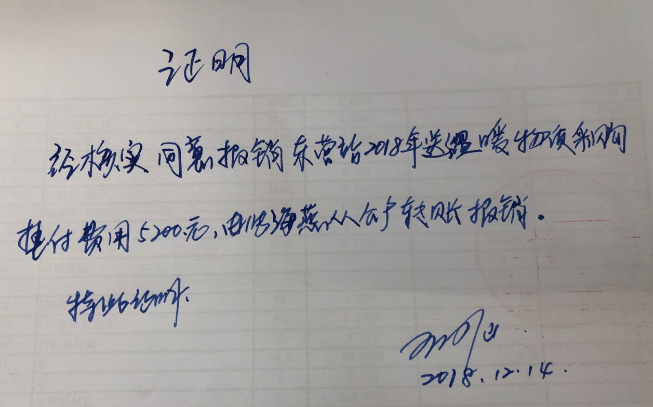 证明
经核实同意报销东营站2018年送温暖物资采购
垫付费用5200元,由 海燕从公户转账报销。
特此证明.
2018.12.14.